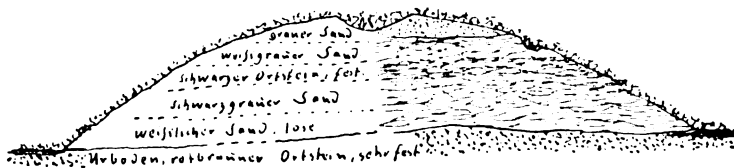 grauer Sand
weißgrauer Sand
schwarzer Ortstein, fest
schwarzgrauer Sand
weißlicher Sand, lose
Urboden, rotbrauner Ortstein, sehr fest